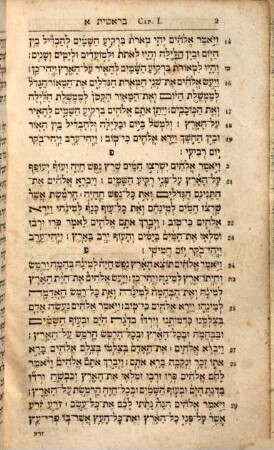 2 Cap. I. בראשית א
14 ויאמר אלהים יהי מארת ברקיע השמים להבדיל בין
היום ובין הלילה והיו לאתת ולמועדים ולימים ושנים:
והיו למאורת ברקיע השמים להאיר על־הארץ ויהי־כן:
ויעש אלהים את־שני המארת הגדלים את־המאור הגדל
לממשלת היום ואת־המאור הקטן לממשלת הלילה
ואת הכוכבים: ויתן אתם אלהים ברקיע השמים להאיר
על־הארץ: ולמשל ביום ובלילה ולהבדיל בין האור
ובין החשך וירא אלהים כי־טוב: ויהי־ערב ויהי־בקר
יום רביעי: פ
ויאמר אלהים ישרצו המים שרץ נפש חיה ועוף יעופף
על־הארץ על־פני רקיע השמים: ויברא אלהים את־
התנינם הגדלים ואת כל־נפש החיה הרמשת אשר
שרצו המים למינהם ואת כל־עוף כנף למינהו וירא
אלהים כי־טוב: ויברך אתם אלהים לאמר פרו ורבו
ומלאו את־המים בימים והעוף ירב בארץ: ויהי־ערב
ויהי־בקר יום חמישי: פ
ויאמר אלהים תוצא הארץ נפש חיה למינה בהמה ורמש
וחיתו־ארץ למינה ויהי־כן: ויעש אלהים את־חית הארץ
למינה ואת־הבהמה למינה ואת כל־רמש האדמה
למינהו וירא אלהים כי־טוב: ויאמר אלהים נעשה אדם
בצלמנו כדמותנו וירדו בדגת הים ובעוף השמים
ובבהמה ובכל־הארץ ובכל־הרמש הרמש על־הארץ:
27 ויברא אלהים את־האדם בצלמו בצלם אלהים ברא
אתו זכר ונקבה ברא אתם: ויברך אתם אלהים ויאמר
להם אלהים פרו ורבו ומלאו את־הארץ וכבשה ורדו
בדגת הים ובעוף השמים ובכל־חיה הרמשת על־הארץ:
29 ויאמר אלהים הנה נתתי לכם את־כל־עשב זרע זרע
אשר על־פני כל־הארץ ואת־כל־העץ אשר־בו פרי־עץ
זרע